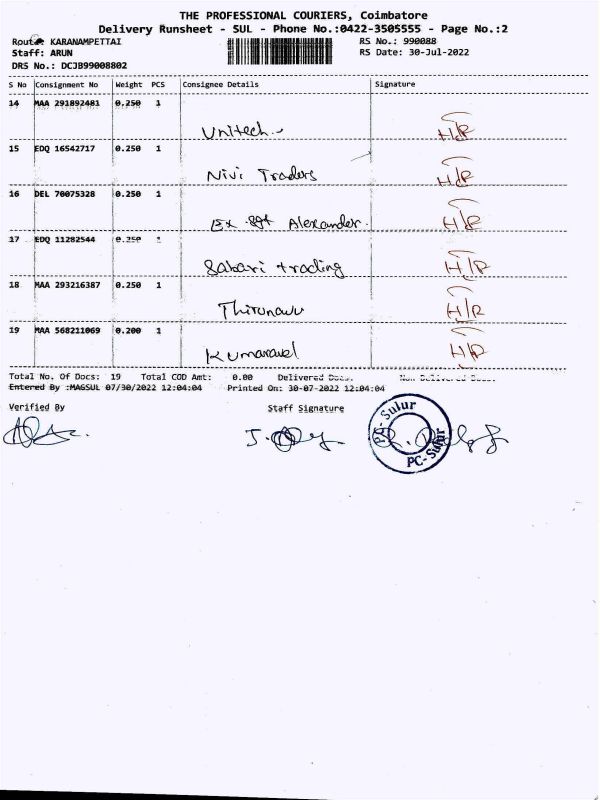 THE PROFESSIONAL COURIERS, Coimbatore
Delivery Runsheet - SUL - Phone No.:0422-3505555 - Page No.:2
Route KARANAMPETTAI RS No.: 990088
Staff: ARUN RS Date: 30-Jul-2022
DRS No.: DCJB99008802
S No Consignment No Weight PCS Consignee Details Signature
14 MAA 291892481 0.250 1
Unitech H/R
15 EDQ 16542717 0.250 1
Nivi Traders H/R
16 DEL 70075328 0.250 1
Ex. Sgt Alexander. H/R
17 EDQ 11282544 0.250 1
Sabari trading H/R
18 MAA 293216387 0.250 1
Thirunavu H/R
19 MAA 568211069 0.200 1
Kumaravel H/R
Total No. Of Docs: 19 Total COD Amt: 0.00 Delivered Docs. Non Delivered Docs.
Entered By :MAGSUL 07/30/2022 12:04:04 Printed On: 30-07-2022 12:04:04
Verified By Staff Signature
PC-Sulur
PC-Sulur